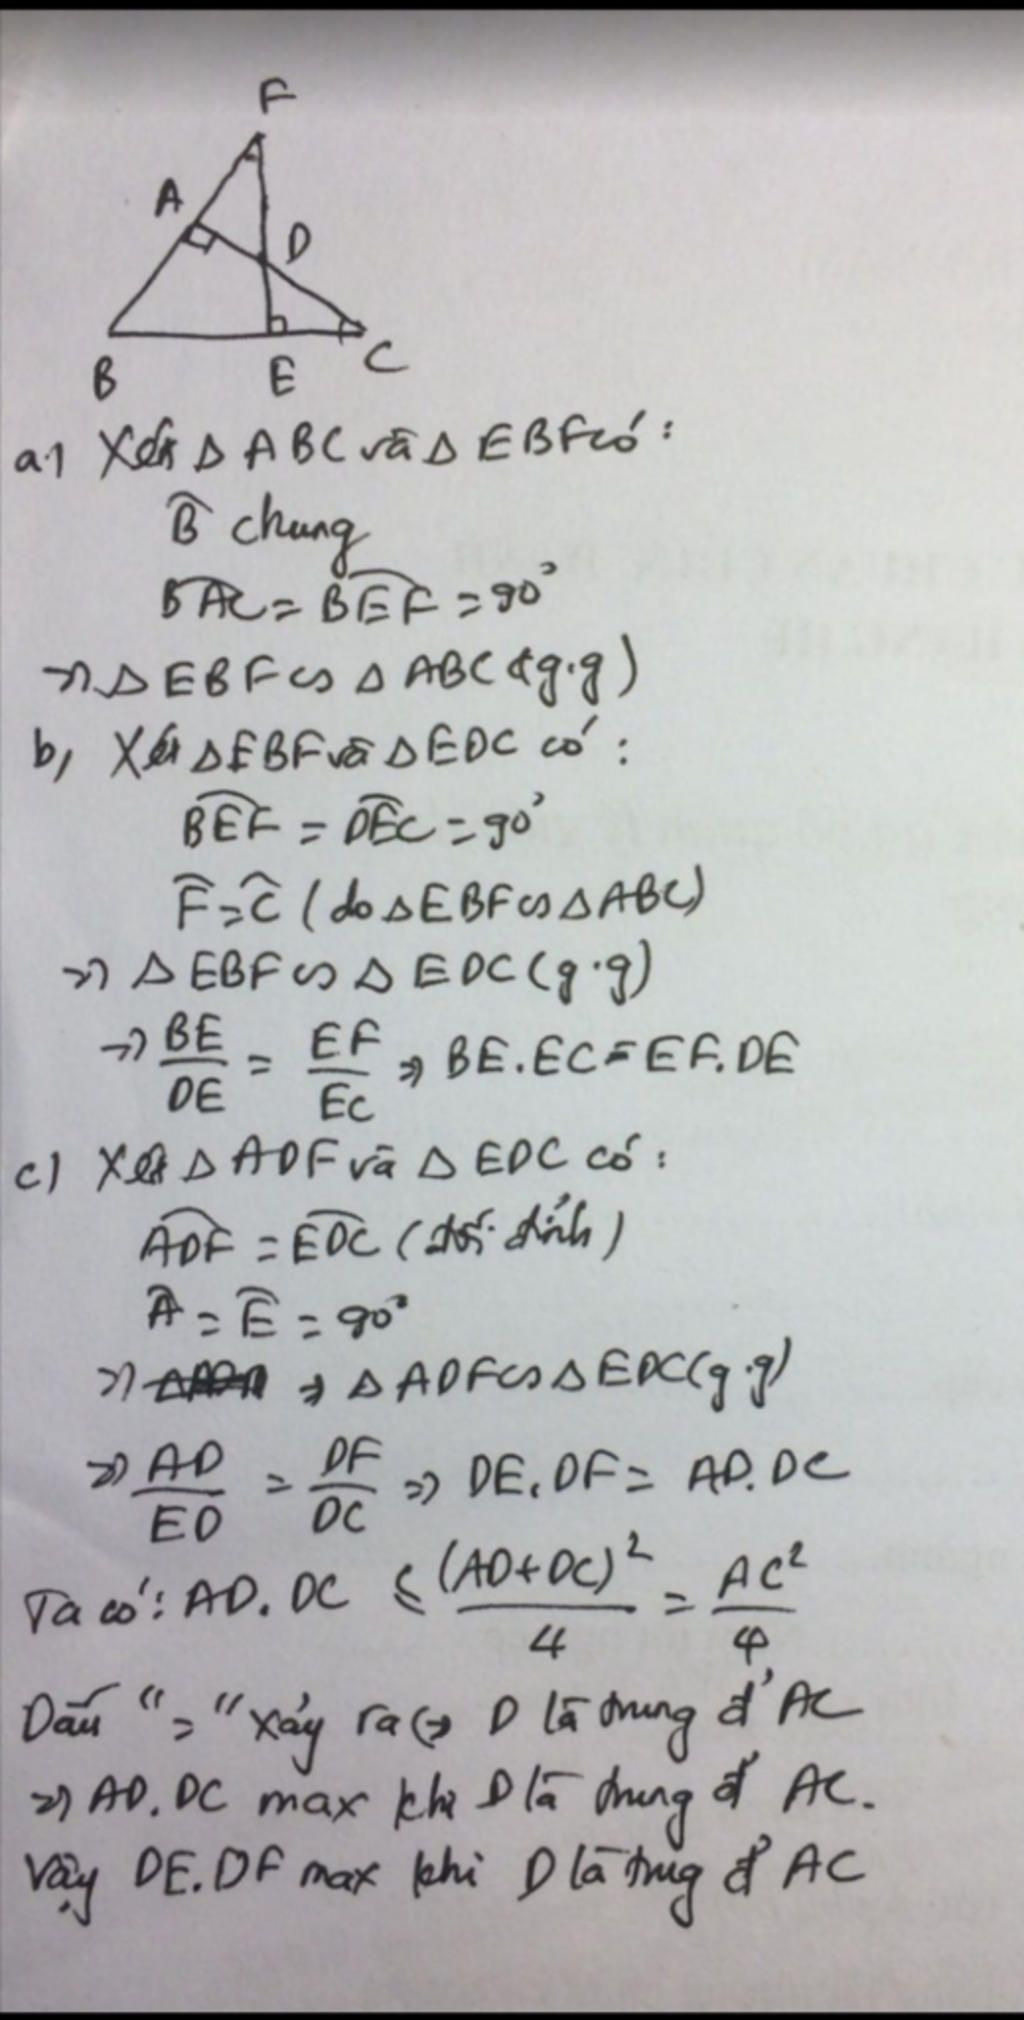 F
A
D
B E C
a) Xét △ ABC và △ EBF có:
B̂ chung
BAC = BEF = 90°
=> △ EBF ∽ △ ABC (g.g)
b, Xét △EBF và △EDC có:
BEF = DEC = 90°
F̂ = Ĉ (do △EBF ∽ △ABC)
=> △ EBF ∽ △ EDC (g.g)
=> BE/DE = EF/EC => BE.EC = EF.DE
c) Xét △ ADF và △ EDC có:
ADF = EDC (đối đỉnh)
Â = Ê = 90°
=> => △ ADF ∽ △ EDC (g.g)
=> AD/ED = DF/DC => DE.DF = AD.DC
Ta có: AD.DC ≤ (AD+DC)²/4 = AC²/4
Dấu "=" xảy ra <=> D là trung đ' AC
=> AD.DC max khi D là trung đ' AC.
Vậy DE.DF max khi D là trug đ' AC